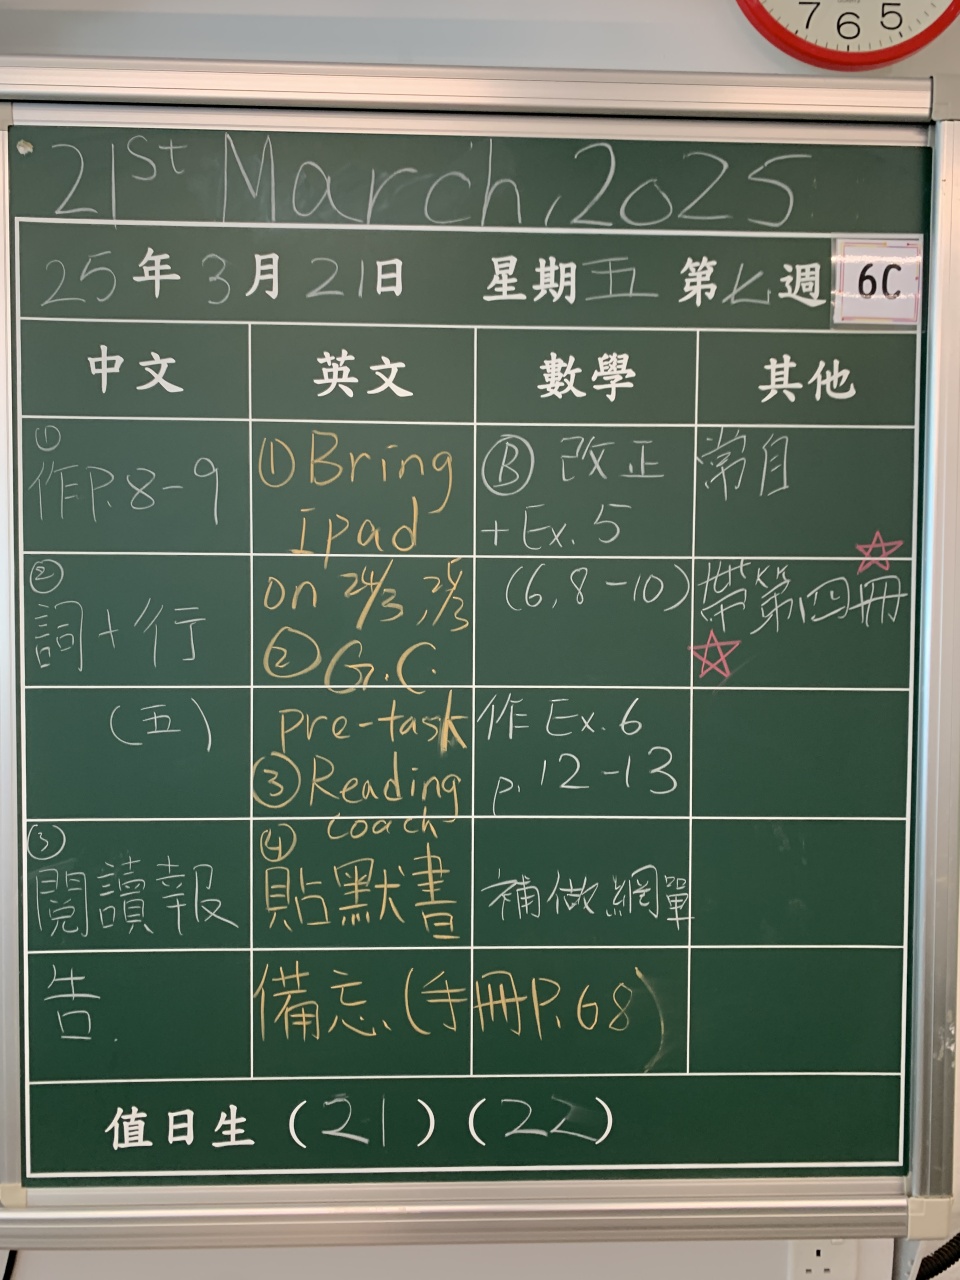 7 6 5
21st March, 2025
25年3月21日 星期五 第七週 6C
中文 英文 數學 其他
①
作P.8-9
②
詞+行
(五)
③
閱讀報
告.
①Bring
ipad
on 24/3, 25/3
②G.C.
pre-task
③Reading
coach
④
貼默書
備忘、(手冊P.68)
Ⓑ 改正
+Ex.5
(6,8-10)
作Ex.6
p.12-13
補做網單
常自
帶第四冊
值日生(21)(22)